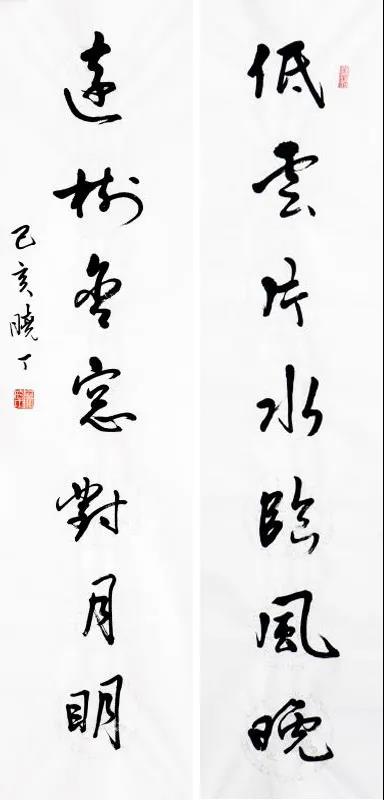 低雲片水臨風晚
遠樹窗對月明
己亥曉丁